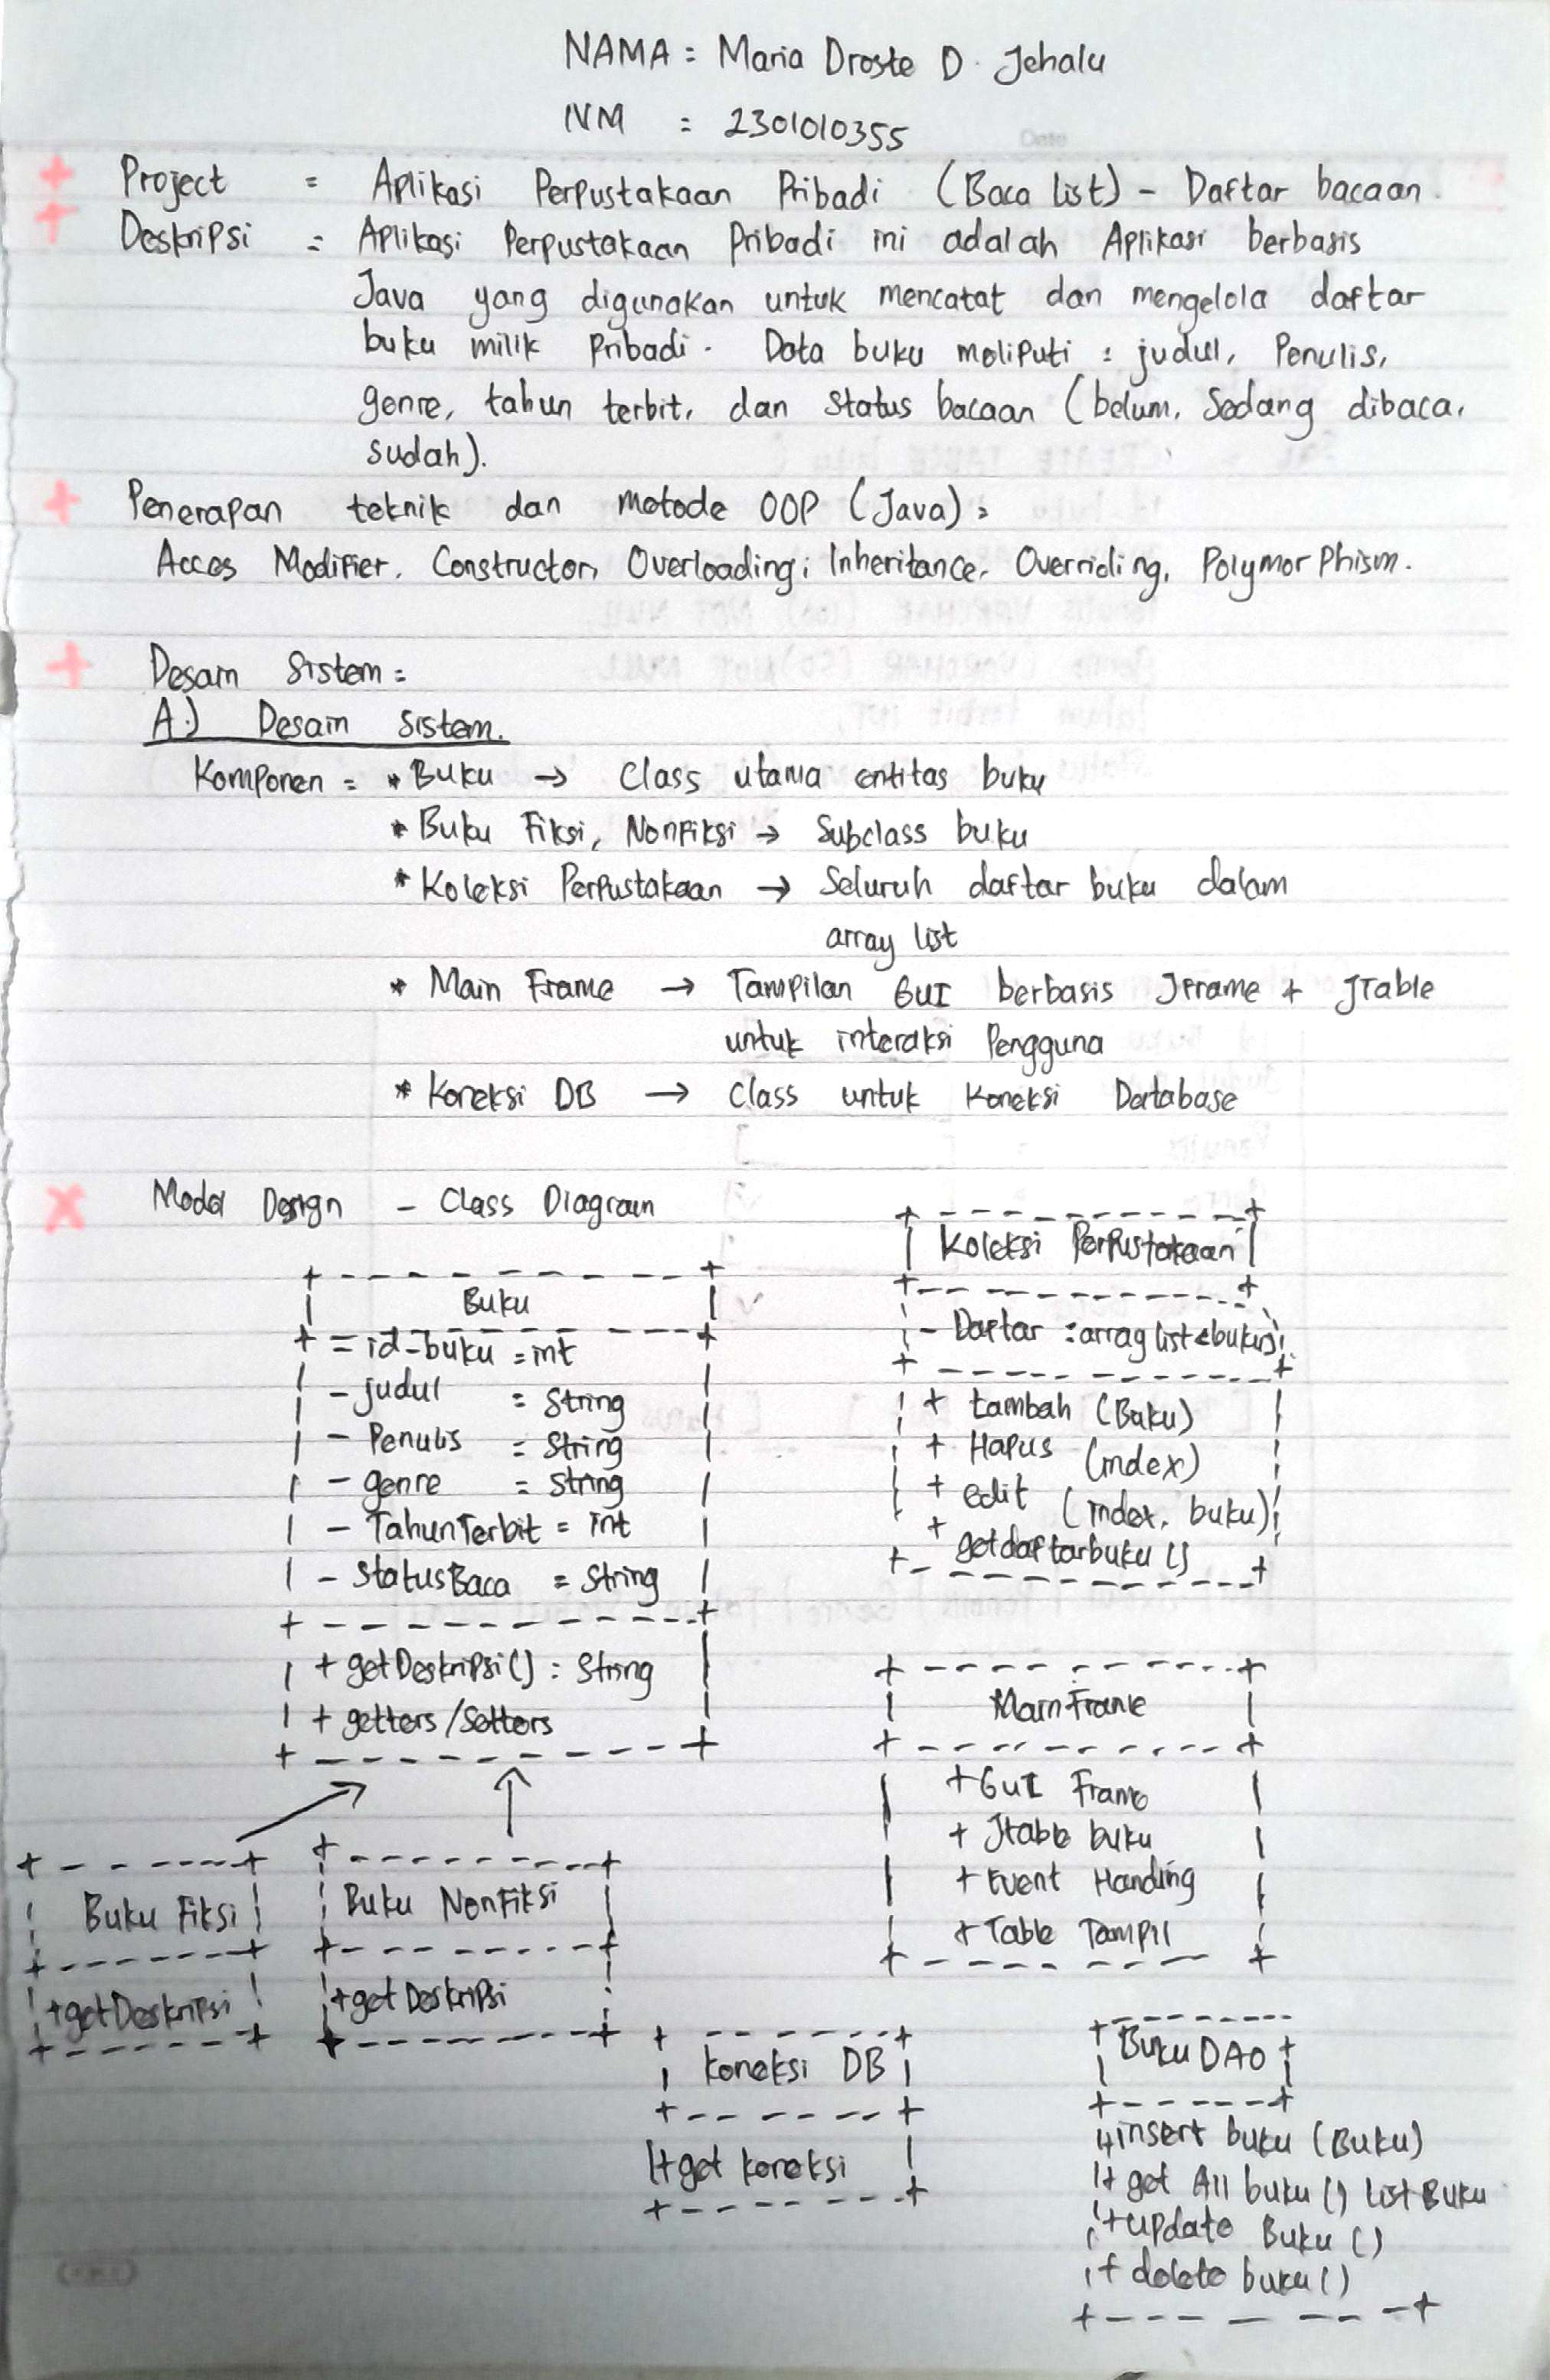 NAMA : Maria Droste D. Jehalu
NM : 2301010355
Project = Aplikasi Perpustakaan Pribadi (Baca list) - Daftar bacaan.
Deskripsi = Aplikasi Perpustakaan Pribadi ini adalah Aplikasi berbasis
Java yang digunakan untuk mencatat dan mengelola daftar
buku milik Pribadi. Data buku meliputi : judul, Penulis,
genre, tahun terbit, dan status bacaan (belum, Sedang dibaca,
sudah).
Penerapan teknik dan metode OOP (Java) :
Acces Modifier, Constructor, Overloading, Inheritance, Overriding, Polymorphism.
Desain Sistem :
A.) Desain sistem.
Komponen = * Buku → Class utama entitas buku
* Buku Fiksi, NonFiksi → Subclass buku
* Koleksi Perpustakaan → Seluruh daftar buku dalam
array list
* Main Frame → Tampilan GUI berbasis JFrame + JTable
untuk interaksi Pengguna
* Koneksi DB → Class untuk Koneksi Database
Model Design - Class Diagram
Buku
= id-buku = int
- judul = String
- Penulis = String
- genre = String
- TahunTerbit = int
- StatusBaca = String
+ getDeskripsi() : String
+ getters/Setters
Buku Fiksi
+getDeskripsi
Buku NonFiksi
+getDeskripsi
Koleksi Perpustakaan
- Daftar : array list<buku>
+ tambah (Buku)
+ Hapus (index)
+ edit (index, buku)
+ getdaftarbuku ()
MainFrame
+GUI Frame
+ Jtable buku
+Event Handing
+Table Tampil
Koneksi DB
+get koneksi
Buku DAO
+insert buku (Buku)
+ get All buku () List Buku
+update Buku ()
+ delete buku ()